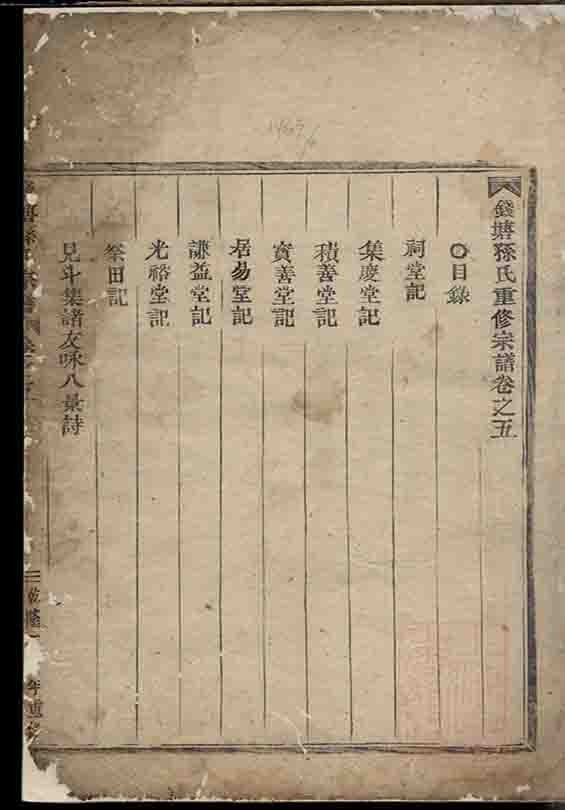 錢塘孫氏重修宗譜卷之五
○目錄
祠堂記
集慶堂記
積善堂記
寶善堂記
居易堂記
謙益堂記
光裕堂記
祭田記
見斗集諸友咏八景詩